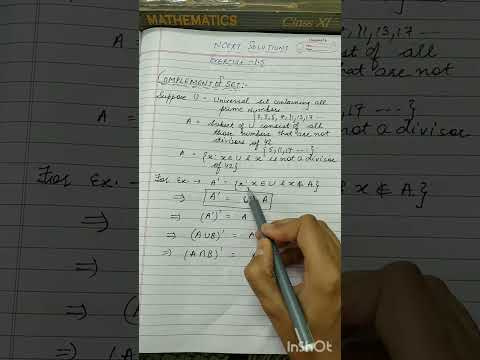 MATHEMATICS Class XI
NCERT SOLUTIONS
EXERCISE - 1.5
COMPLEMENT OF SET:-
Suppose U - Universal set containing all
prime numbers
{2, 3, 5, 7, 11, 13, 17
A = Subset of U consist of all
those numbers that are not
divisors of 42
{5, 11, 17 ---}
A = {x: x ∈ U & x is not a divisor
of 42}
For Ex. → A' = {x: x ∈ U & x ∉ A}
⇒ A' = A
⇒ (A')' = A
⇒ (A∪B)' = A
⇒ (A∩B)' =
A =
, 11, 13, 17 ---
sist of all
that are not
17 --- }
& x ∉ A}
InShOt